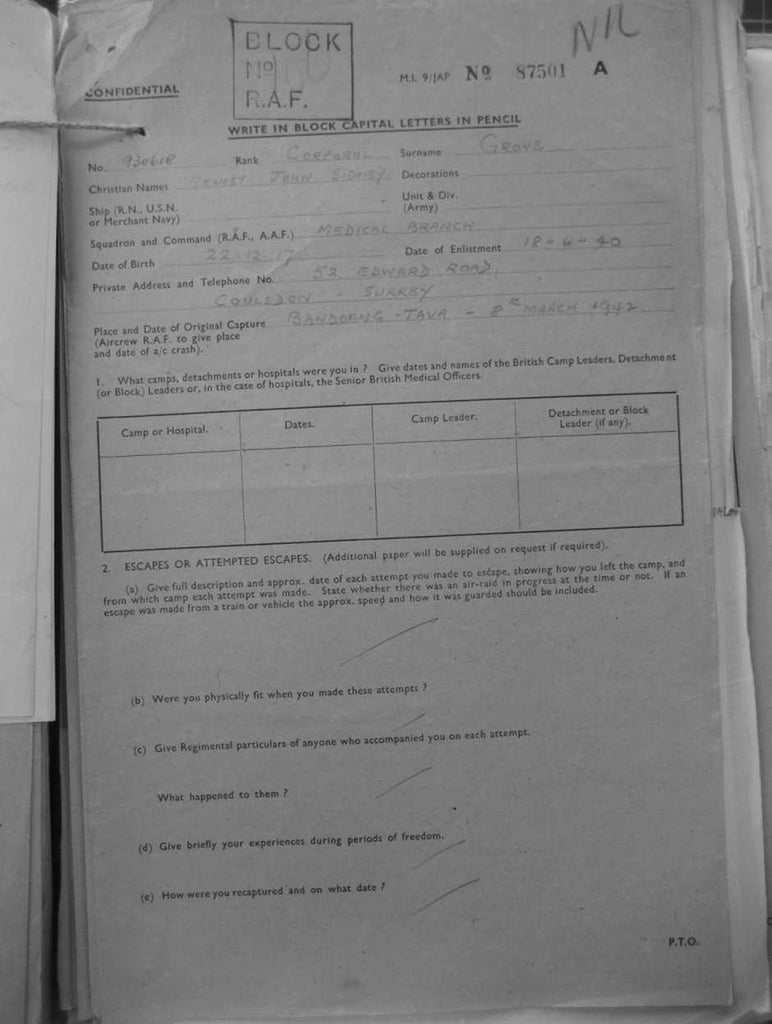 NIL
BLOCK
No 100
R.A.F.
CONFIDENTIAL
M.I. 9/JAP No 87501 A
WRITE IN BLOCK CAPITAL LETTERS IN PENCIL
No. 930618 Rank CORPORAL Surname GROVE
Christian Names ERNEST JOHN SIDNEY Decorations
Ship (R.N., U.S.N. or Merchant Navy) Unit & Div. (Army)
Squadron and Command (R.A.F., A.A.F.) MEDICAL BRANCH
Date of Birth 22.12.17 Date of Enlistment 18-6-40
Private Address and Telephone No. 52, EDWARD ROAD,
COULSDON - SURREY
Place and Date of Original Capture BANDOENG - JAVA - 8th MARCH 1942
(Aircrew R.A.F. to give place
and date of a/c crash).
1. What camps, detachments or hospitals were you in ? Give dates and names of the British Camp Leaders, Detachment
(or Block) Leaders or, in the case of hospitals, the Senior British Medical Officers.
Camp or Hospital. Dates. Camp Leader. Detachment or Block
Leader (if any).
2. ESCAPES OR ATTEMPTED ESCAPES. (Additional paper will be supplied on request if required).
(a) Give full description and approx. date of each attempt you made to escape, showing how you left the camp, and
from which camp each attempt was made. State whether there was an air-raid in progress at the time or not. If an
escape was made from a train or vehicle the approx. speed and how it was guarded should be included.
(b) Were you physically fit when you made these attempts ?
(c) Give Regimental particulars of anyone who accompanied you on each attempt.
What happened to them ?
(d) Give briefly your experiences during periods of freedom.
(e) How were you recaptured and on what date ?
P.T.O.